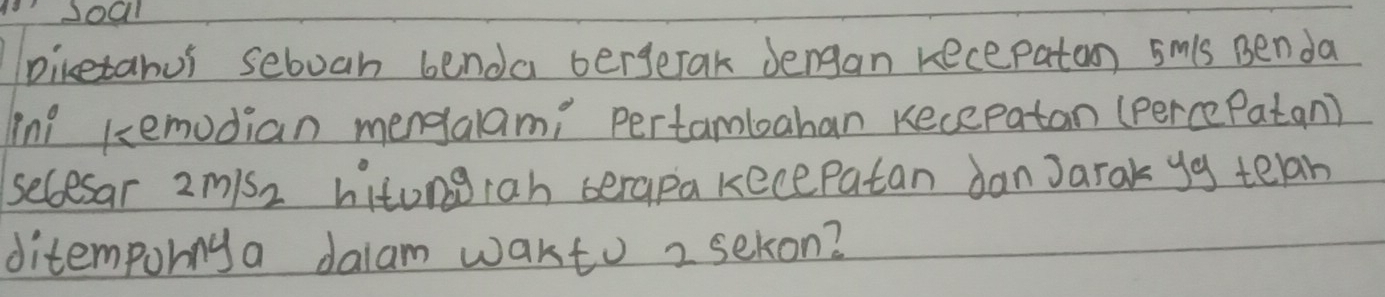 Soal
Diketahui sebuah benda bergerak dengan kecepatan 5m/s Benda
ini kemudian mengalami pertambahan kecepatan (percepatan)
sebesar 2m/s2 hitunglah berapa kecepatan dan Jarak yg telah
ditempuhnya dalam waktu 2 sekon?